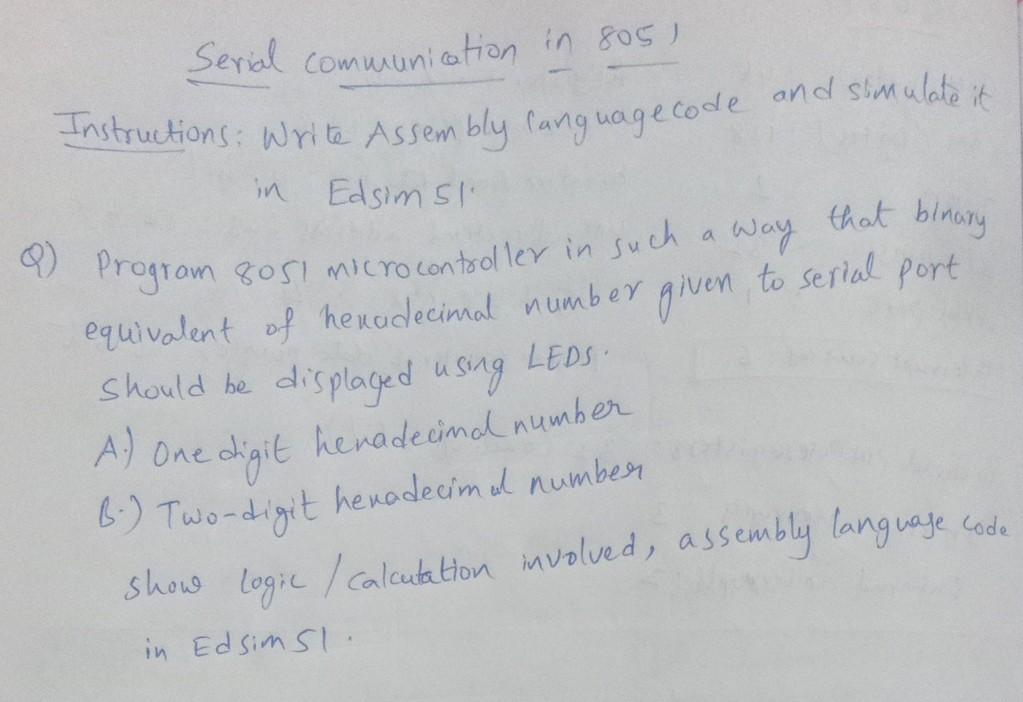 Serial communication in 8051
Instructions: Write Assembly language code and simulate it
in Edsim51.
Q) Program 8051 microcontroller in such a way that binary
equivalent of hexadecimal number given to serial port
should be displayed using LEDS.
A.) One digit hexadecimal number
B.) Two-digit hexadecimal number
show logic / calculation involved, assembly language code
in Edsim51.